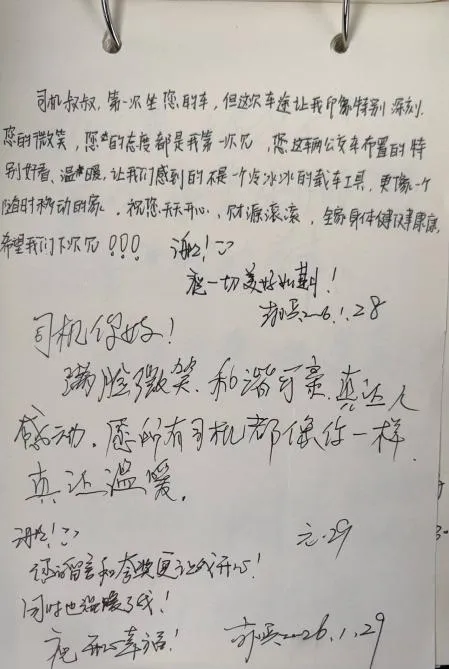 司机叔叔,第一次坐您的车,但这次车途让我印象特别深刻.
您的微笑,您的态度都是我第一次见,您这辆公交车布置的特
别好看、温暖,让我们感到的不是一个冷冰冰的载车工具,更像一个
随时移动的家,祝您天天开心,财源滚滚,全家身体健健康康,
希望我们下次见!!!
谢谢!
祝一切美好如期!
2026.1.28
司机你好!
满脸微笑.和谐可亲.真让人
感动.愿所有司机都像你一样.
真让温暖.
谢谢!
元.29
您的留言和夸奖更让我开心!
同时也温暖了我!
祝开心幸福!
2026.1.29